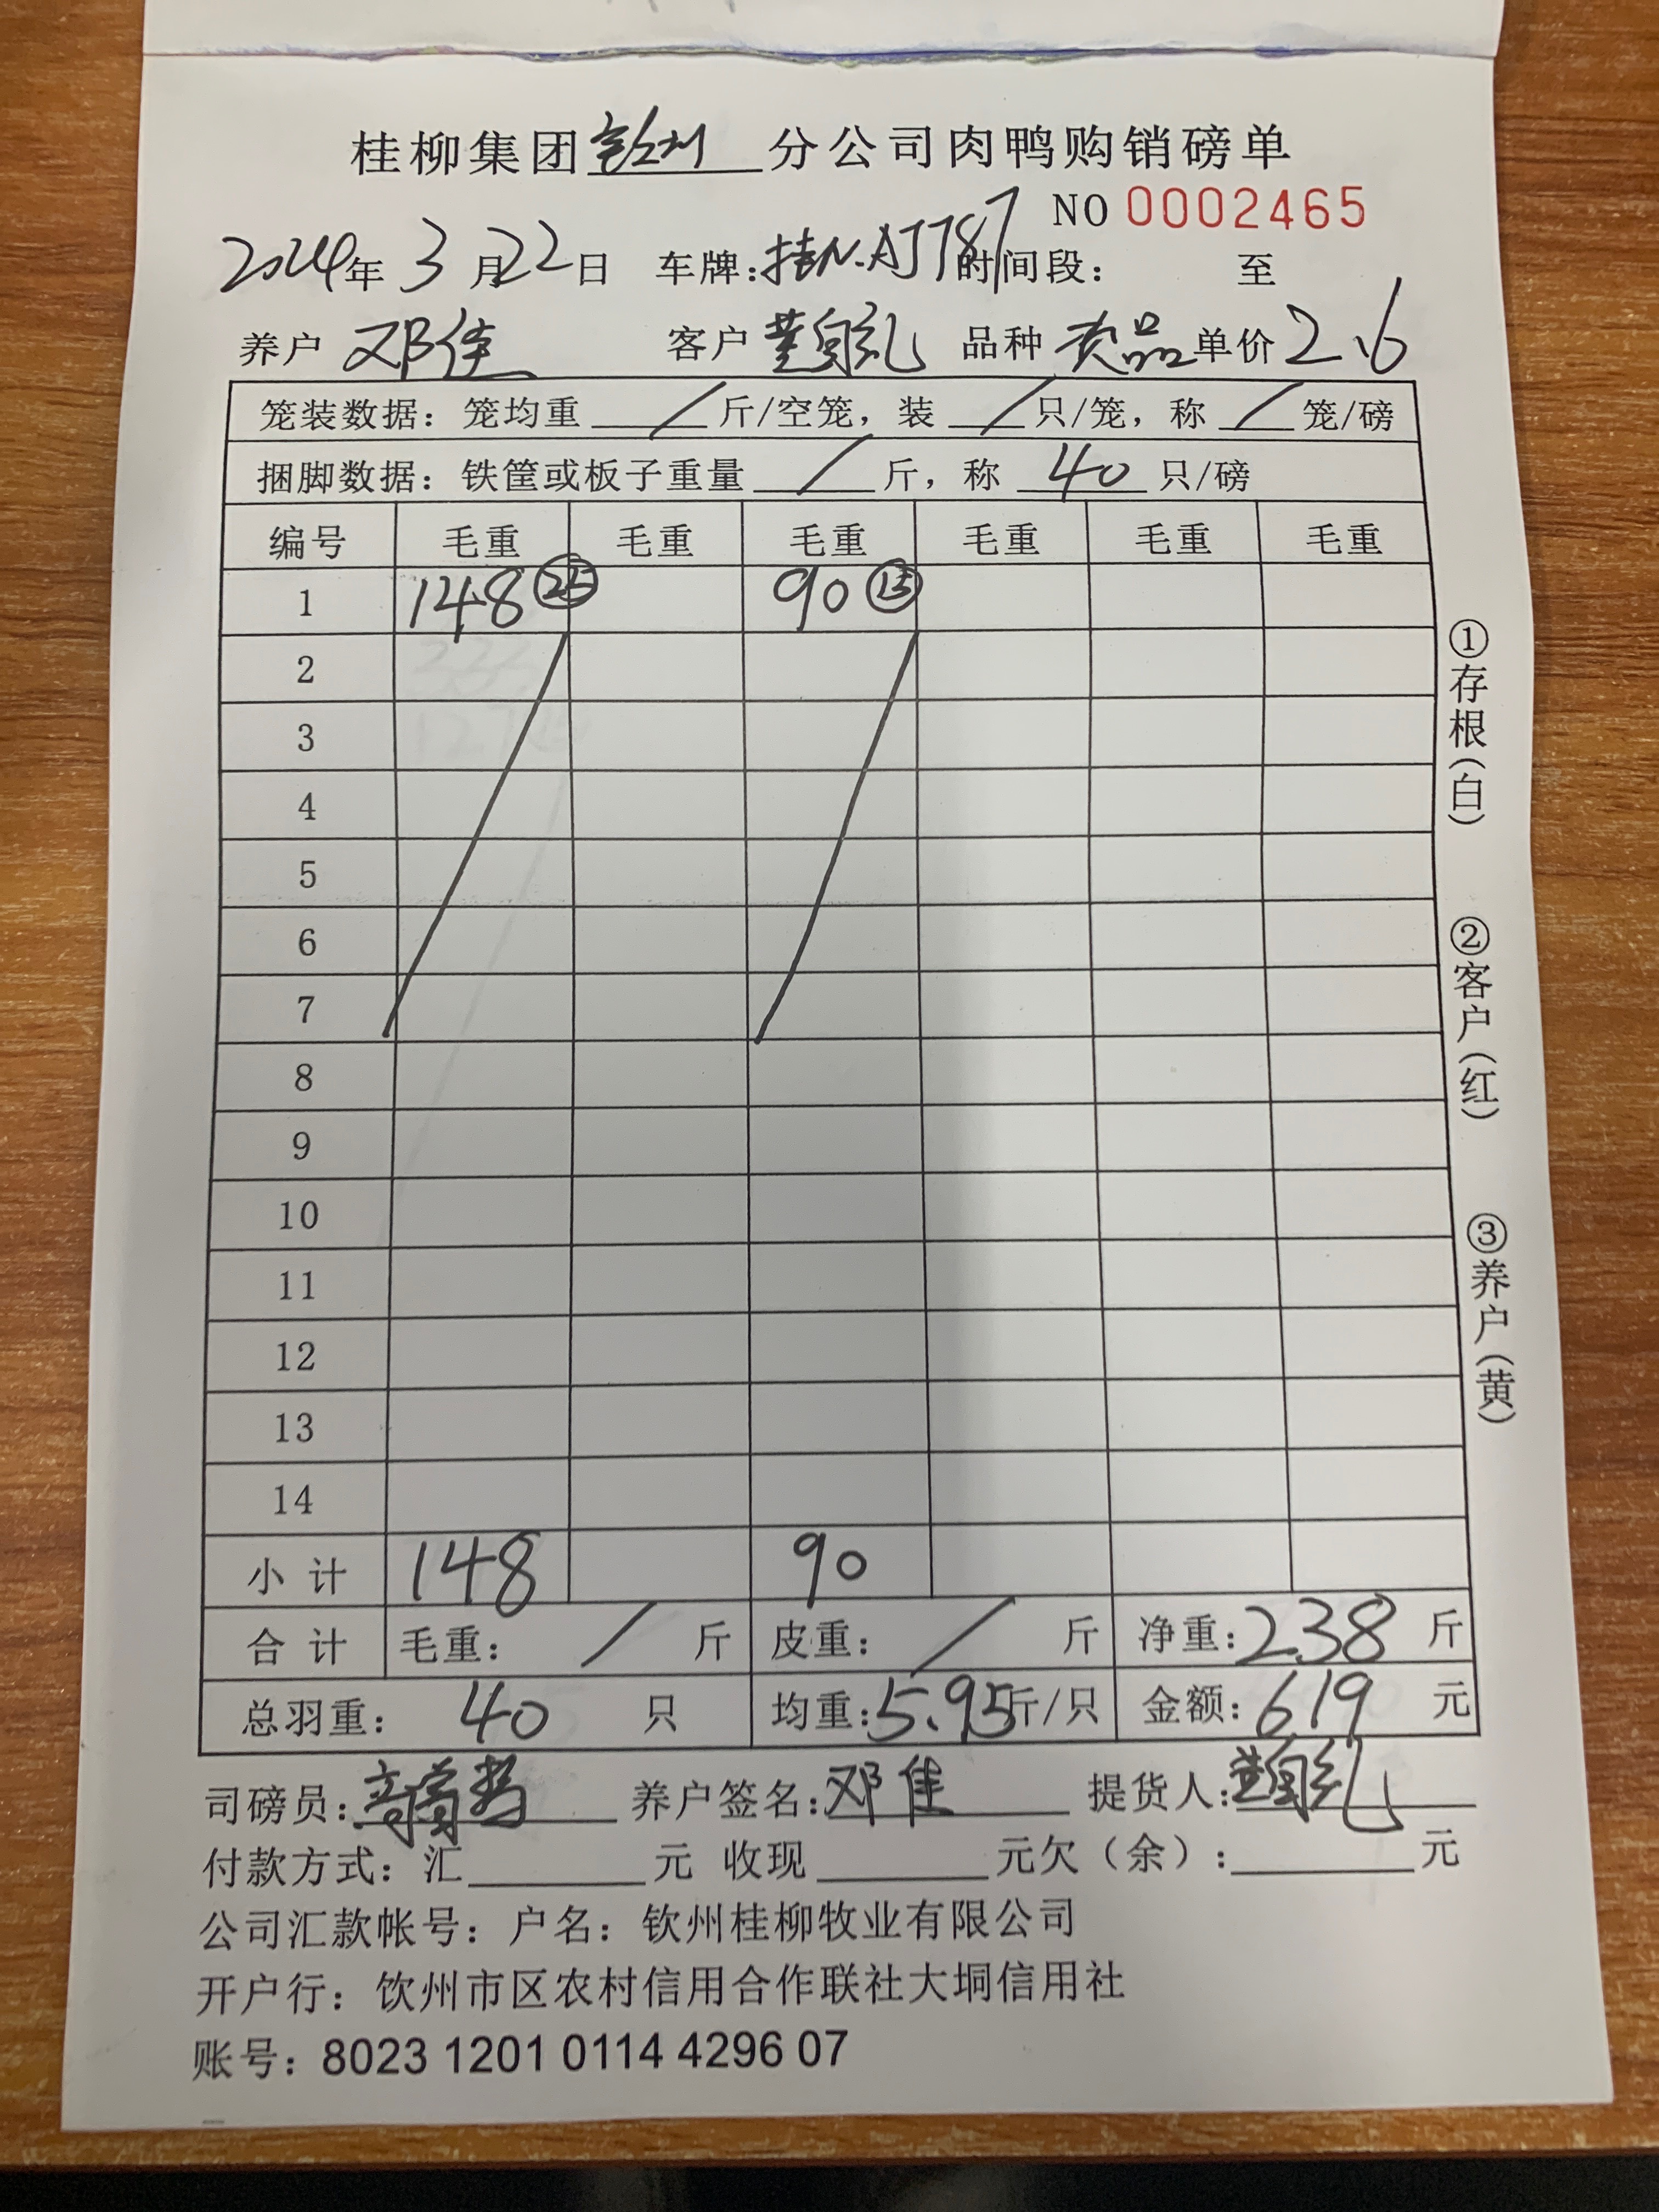 桂柳集团钦州分公司肉鸭购销磅单
NO 0002465
2024年 3月22日 车牌:桂N.AJ787 时间段: 至
养户 邓佳 客户 品种 次品 单价 2.6
笼装数据: 笼均重 / 斤/空笼, 装 / 只/笼, 称 / 笼/磅
捆脚数据: 铁筐或板子重量 / 斤, 称 40 只/磅
编号 毛重 毛重 毛重 毛重 毛重 毛重
1 148 ㉕ 90 ⑮
2
3
4
5
6
7
8
9
10
11
12
13
14
小计 148 90
合计 毛重: / 斤 皮重: / 斤 净重: 238 斤
总羽重: 40 只 均重: 5.95 斤/只 金额: 619 元
司磅员: 养户签名: 邓佳 提货人:
付款方式: 汇 元 收现 元欠(余): 元
公司汇款帐号: 户名: 钦州桂柳牧业有限公司
开户行: 钦州市区农村信用合作联社大垌信用社
账号: 8023 1201 0114 4296 07
①存根(白)
②客户(红)
③养户(黄)